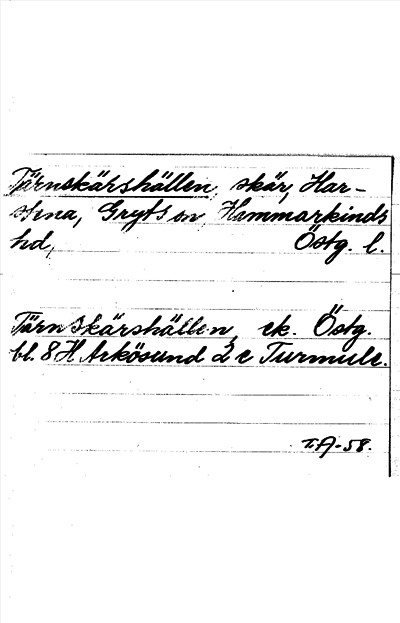 Tärnskärshällen, skär, Har-
stena, Gryts sn, Hammarkinds
hd, Östg. l.
Tärnskärshällen, ek. Östg.
bl. 8 H Arkösund 2 c Turmulc.
T.A-58.